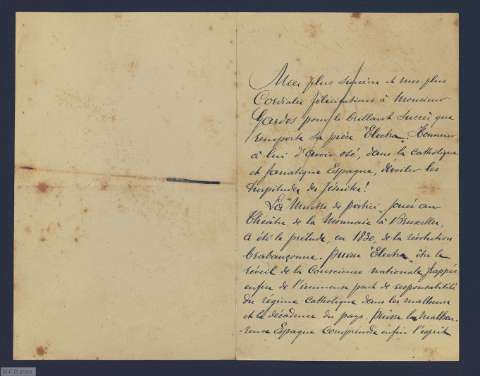 Mes plus sincères et mes plus
Cordiales félicitations à Monsieur
Galdos pour le brillant succès que
remporte sa pièce "Electra". Honneur
à lui d'avoir osé, dans la catholique
et fanatique Espagne, dévoiler les
turpitudes des Jésuites!
La "Muette de Portici" jouée au
Théâtre de la Monnaie à Bruxelles,
a été le prélude, en 1830, de la révolution
brabançonne. Puisse "Electra" être le
réveil de la Conscience nationale frappée
enfin de l'immense part de responsabilité
du régime catholique dans les malheurs
et la décadence du pays. Puisse la malheu-
reuse Espagne comprendre enfin l'esprit